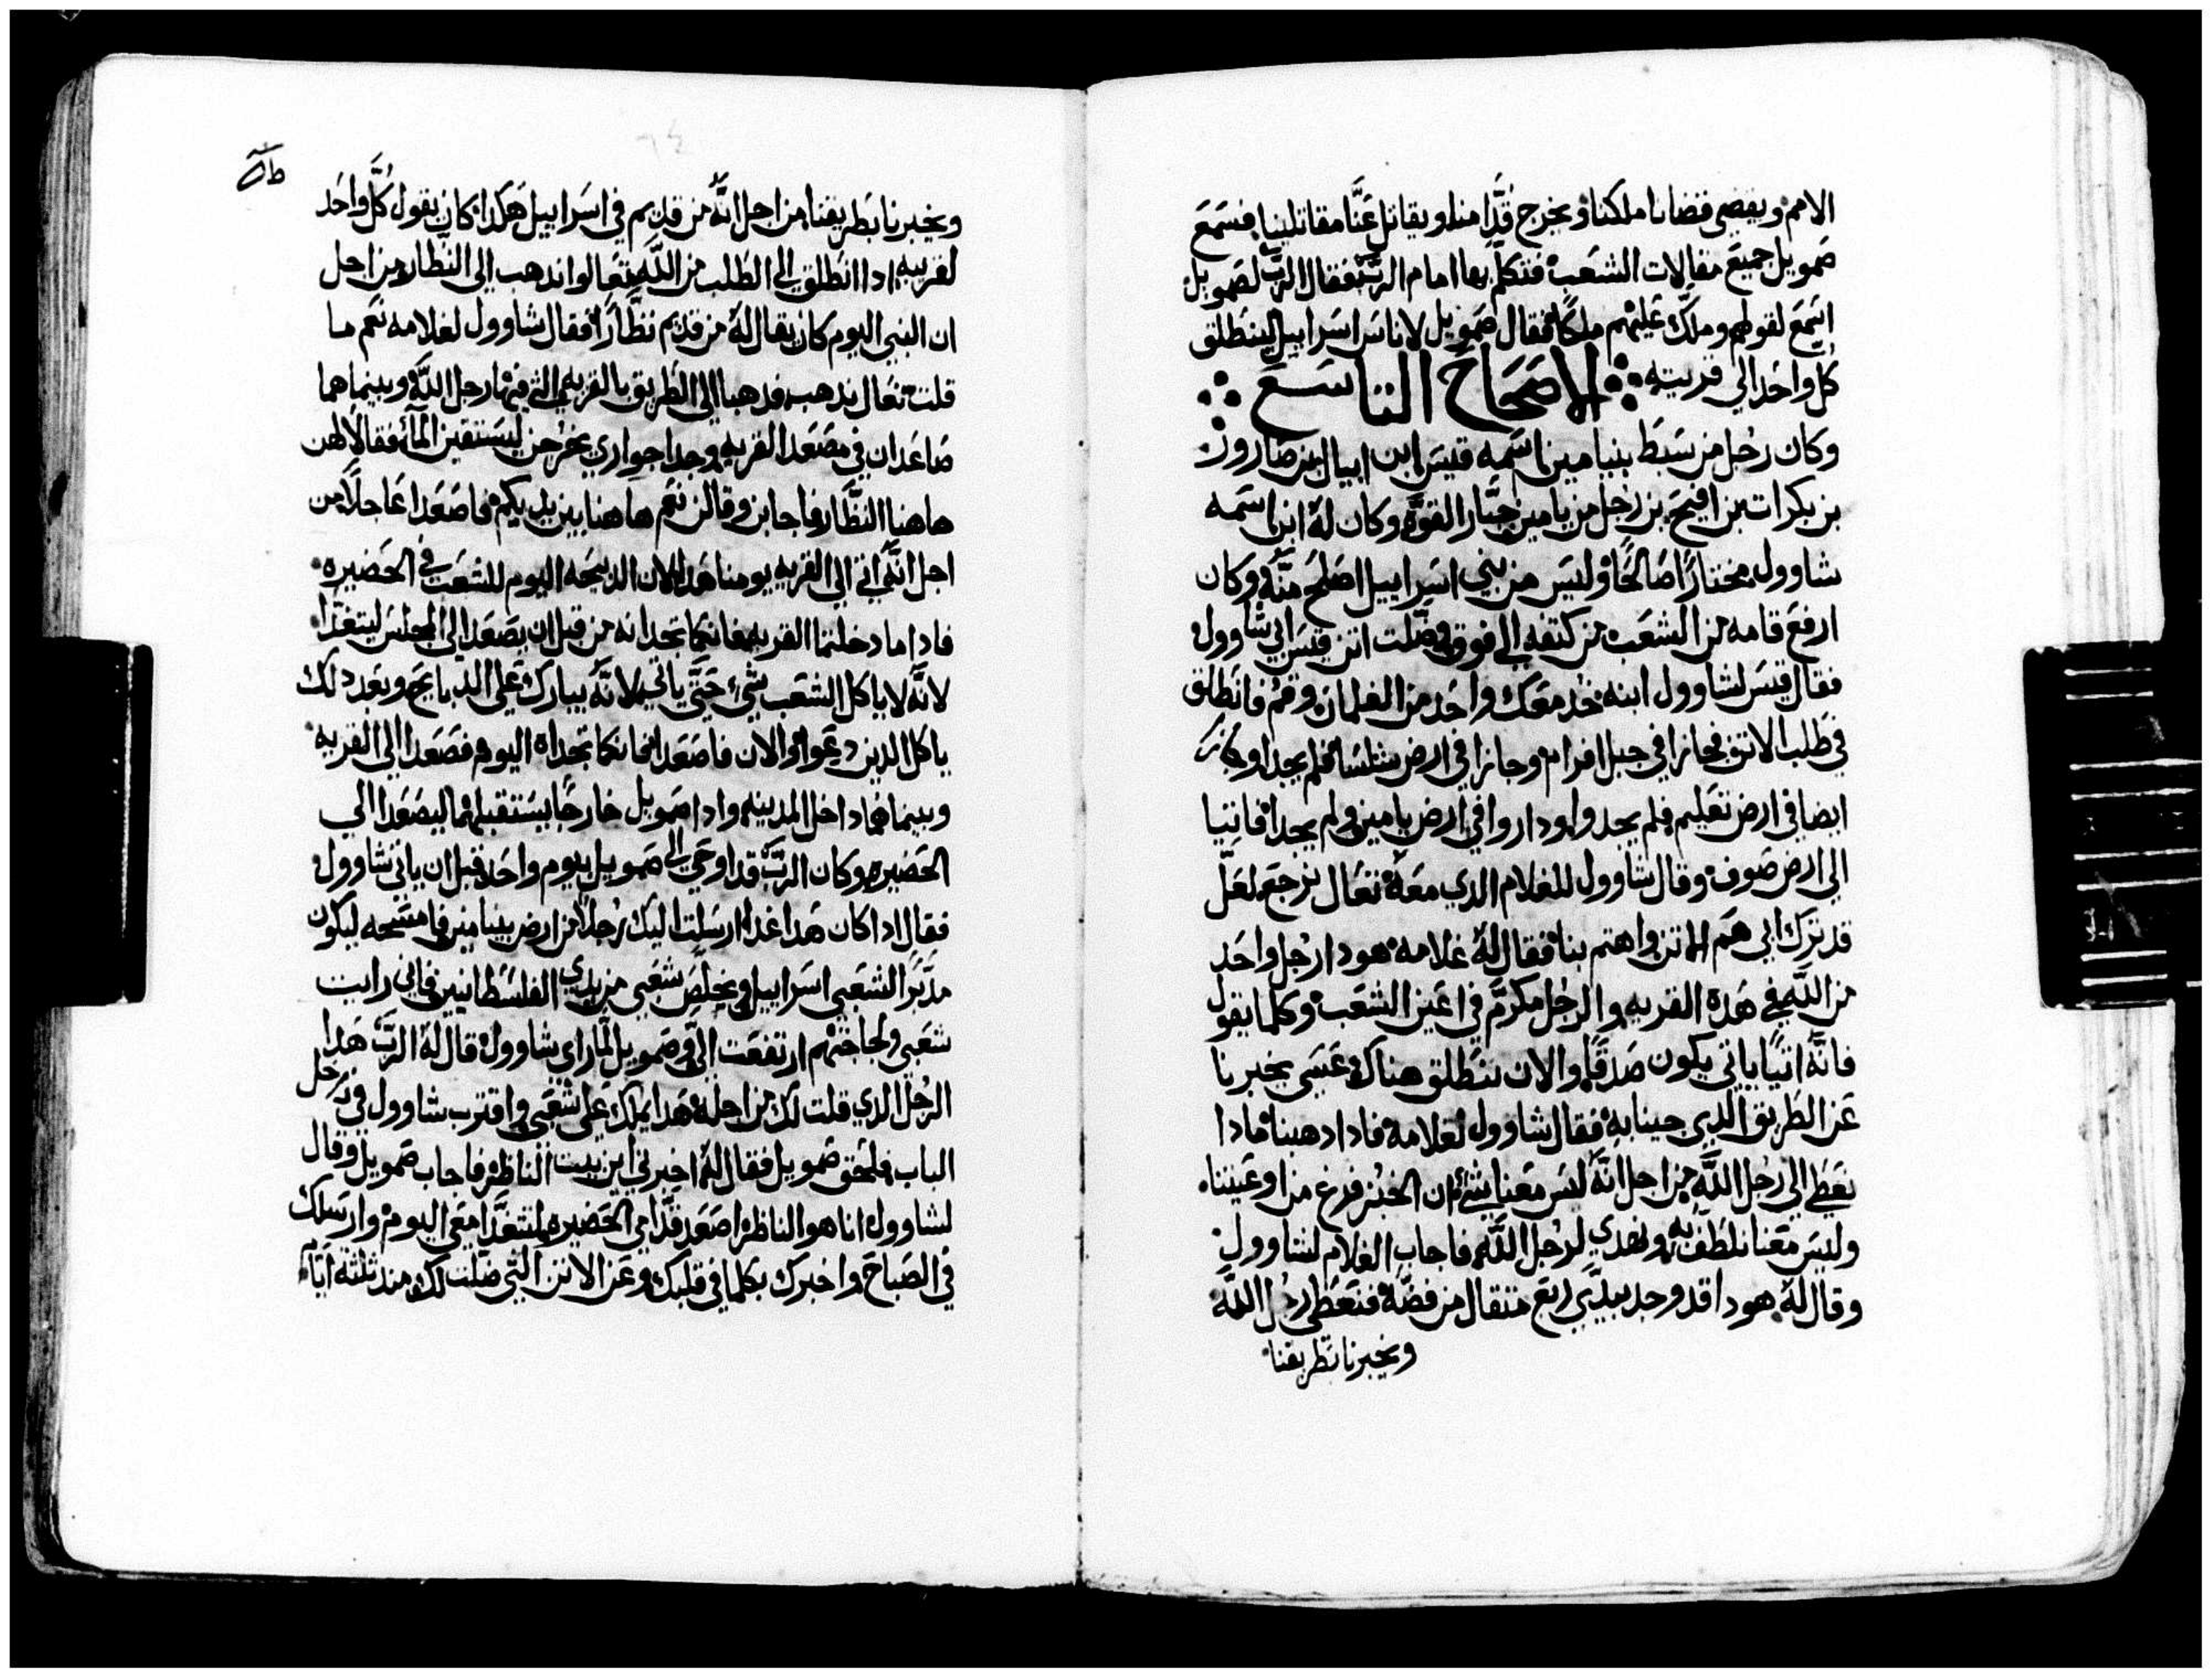 الامم ويقضي قضانا ملكنا ويخرج قدامنا ويقاتل عنا مقاتلينا فسمع
صمويل جميع مقالات الشعب فتكلم بها امام الرب فقال الرب لصمويل
اسمع لقولهم وملك عليهم ملكا فقال صمويل لاناس اسراييل لينطلق
كل واحد الى قريته الاصحاح التاسع
وكان رجل من سبط بنيامين اسمه قيس ابن ابيال بن صارور
بن بكرات بن افيح بن رجل من يامين جبار القوة وكان له ابن اسمه
شاوول مختارا صالحا وليس من بني اسراييل اصلح منه وكان
ارفع قامه من الشعب من كتفه الي فوق وضلت اتن قيس ابي شاوول
فقال قيس لشاوول ابنه خد معك واحد من الغلمان وقم فانطلق
في طلب الاتن فجازا في جبل افرام وجازا في ارض شلسا فلم يجدا وجازا
ايضا في ارض تعليم فلم يجدوا وداروا في ارض يامين ولم يجدا فاتيا
الى ارض صوف وقال شاوول للغلام الدي معه تعال نرجع لعل
قد ترك ابي هم الاتن واهتم بنا فقال له غلامه هودا رجل واحد
من الله في هده القريه والرجل مكرم في اعين الشعب وكلما يقول
فانه اتيا ياتي يكون صدقا والان ننطلق هناك عسى يخبرنا
عن الطريق الدي جينا به فقال شاوول لغلامه فادا دهبنا مادا
نعطي الى رجل الله من اجل انه ليس معنا شي ان الخبز فرغ من اوعيتنا
وليس معنا نلطف به ونهدي لرجل الله فاجاب الغلام لشاوول
وقال له هودا قد وجد بيدي ربع متقال من فضه فتعطي رجل الله
ويخبرنا بطريقنا
ويخبرنا بطريقنا من اجل انه من قديم في اسراييل هكدا كان يقول كل واحد
لقريبه ادا انطلق الى الطلب من الله تعالوا ندهب الى النظار من اجل
ان النبي اليوم كان يقال له من قديم نظارا فقال شاوول لغلامه نعم ما
قلت تعال ندهب فدهبا الى الطريق بالقريه التي فيها رجل الله وبينما هما
صاعدان في مصعد القريه وجدا جواري يخرجن ليستقين المآء فقالا لهن
هاهنا النظار فاجابن وقالن نعم هاهنا بين يديكم فاصعدا عاجلا من
اجل انه اتي الى القريه يومنا هدا لان الدبيحه اليوم للشعب في الحضيره
فادا ما دخلتما القريه فانكما تجدانه من قبل ان يصعد الى المجلس ليتغدا
لانه لا ياكل الشعب شي حتى ياتي لانه يبارك على الدبايح وبعد دلك
ياكل الدين دعوا والان فاصعدا فانكما تجداه اليوم فصعدا الى القريه
وبينما هما داخل المدينه وادا صمويل خارجا يستقبلهما ليصعد الى
الحضيره وكان الرب قد اوحى الى صمويل بيوم واحد قبل ان ياتي شاوول
فقال ادا كان هدا غدا ارسلت اليك رجلا من ارض بنيامين فامسحه ليكون
مدبرا لشعبي اسراييل ويخلص شعبي من يدي الفلسطانيين فاني رايت
شعبي ولجاجتهم ارتفعت الي وصمويل لما راى شاوول قال له الرب هدا
الرجل الدي قلت لك من اجله هدا يملك على شعبي واقترب شاوول في داخل
الباب فلحق صمويل فقال له اخبرني اين بيت الناظر فاجاب صمويل وقال
لشاوول انا هو الناظر اصعد قدامي الحضيره لنتغدا معي اليوم وارسلك
في الصباح واخبرك بكلما في قلبك وعن الاتن التي ضلت لك مند ثلثة ايام